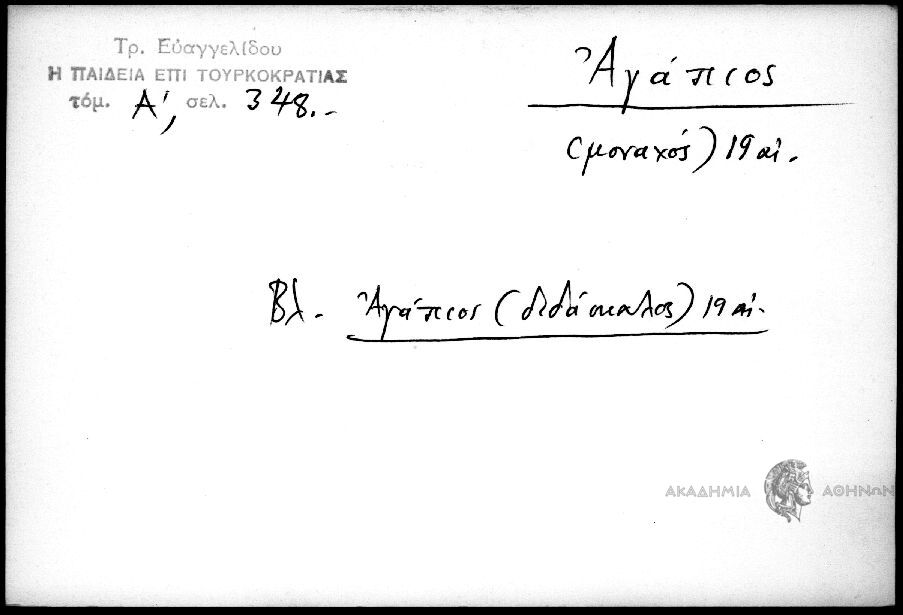 Τρ. Εὐαγγελίδου
Η ΠΑΙΔΕΙΑ ΕΠΙ ΤΟΥΡΚΟΚΡΑΤΙΑΣ
τόμ. Α', σελ. 348.-
Ἀγάπιος
(μοναχός) 19 αἰ.
Βλ. Ἀγάπιος (διδάσκαλος) 19 αἰ.
ΑΚΑΔΗΜΙΑ ΑΘΗΝΩΝ